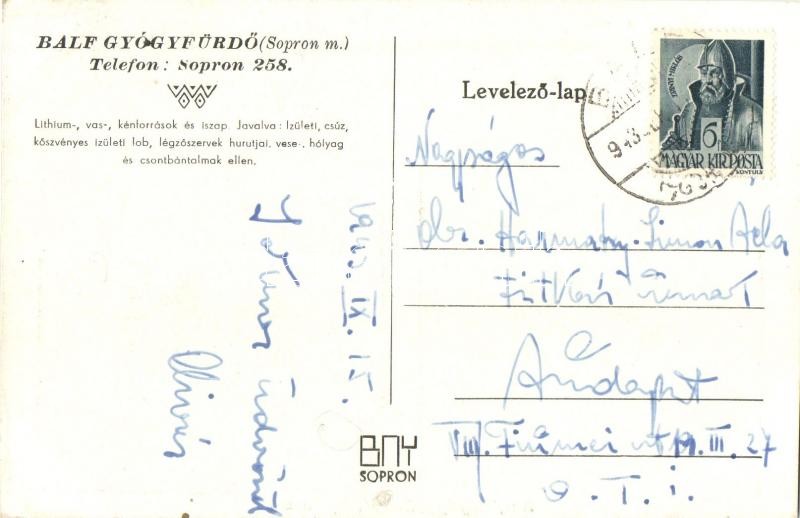 BALF GYÓGYFÜRDŐ (Sopron m.)
Telefon: Sopron 258.
Lithium-, vas-, kénforrások és iszap. Javalva: Izületi, csúz,
köszvényes izületi lob, légzőszervek hurutjai. vese-. hólyag
és csontbántalmak ellen.
1943. IX. 15.
üdvözöl
Levelező-lap
ZRINYI MIKLÓS
6
MAGYAR KIR. POSTA
KONTULY
943.
Nagyságos
dr. Harmathy-Simon Béla
titkár urnak
Budapest
VIII. Fiumei ut 19. III. 27
O.T.I.
BNY
SOPRON